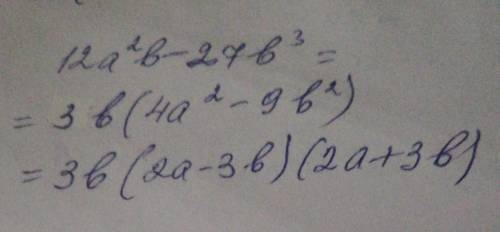 12a²b-27b³=
=3b(4a²-9b²)
=3b(2a-3b)(2a+3b)